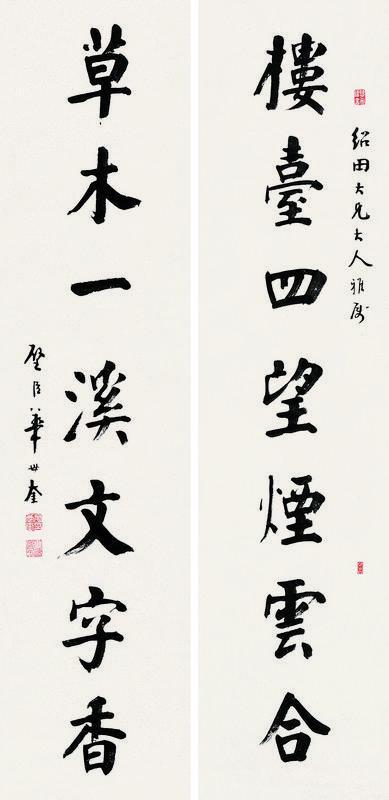 紹田大兄大人雅屬
樓臺四望煙雲合
草木一溪文字香
璧臣華世奎